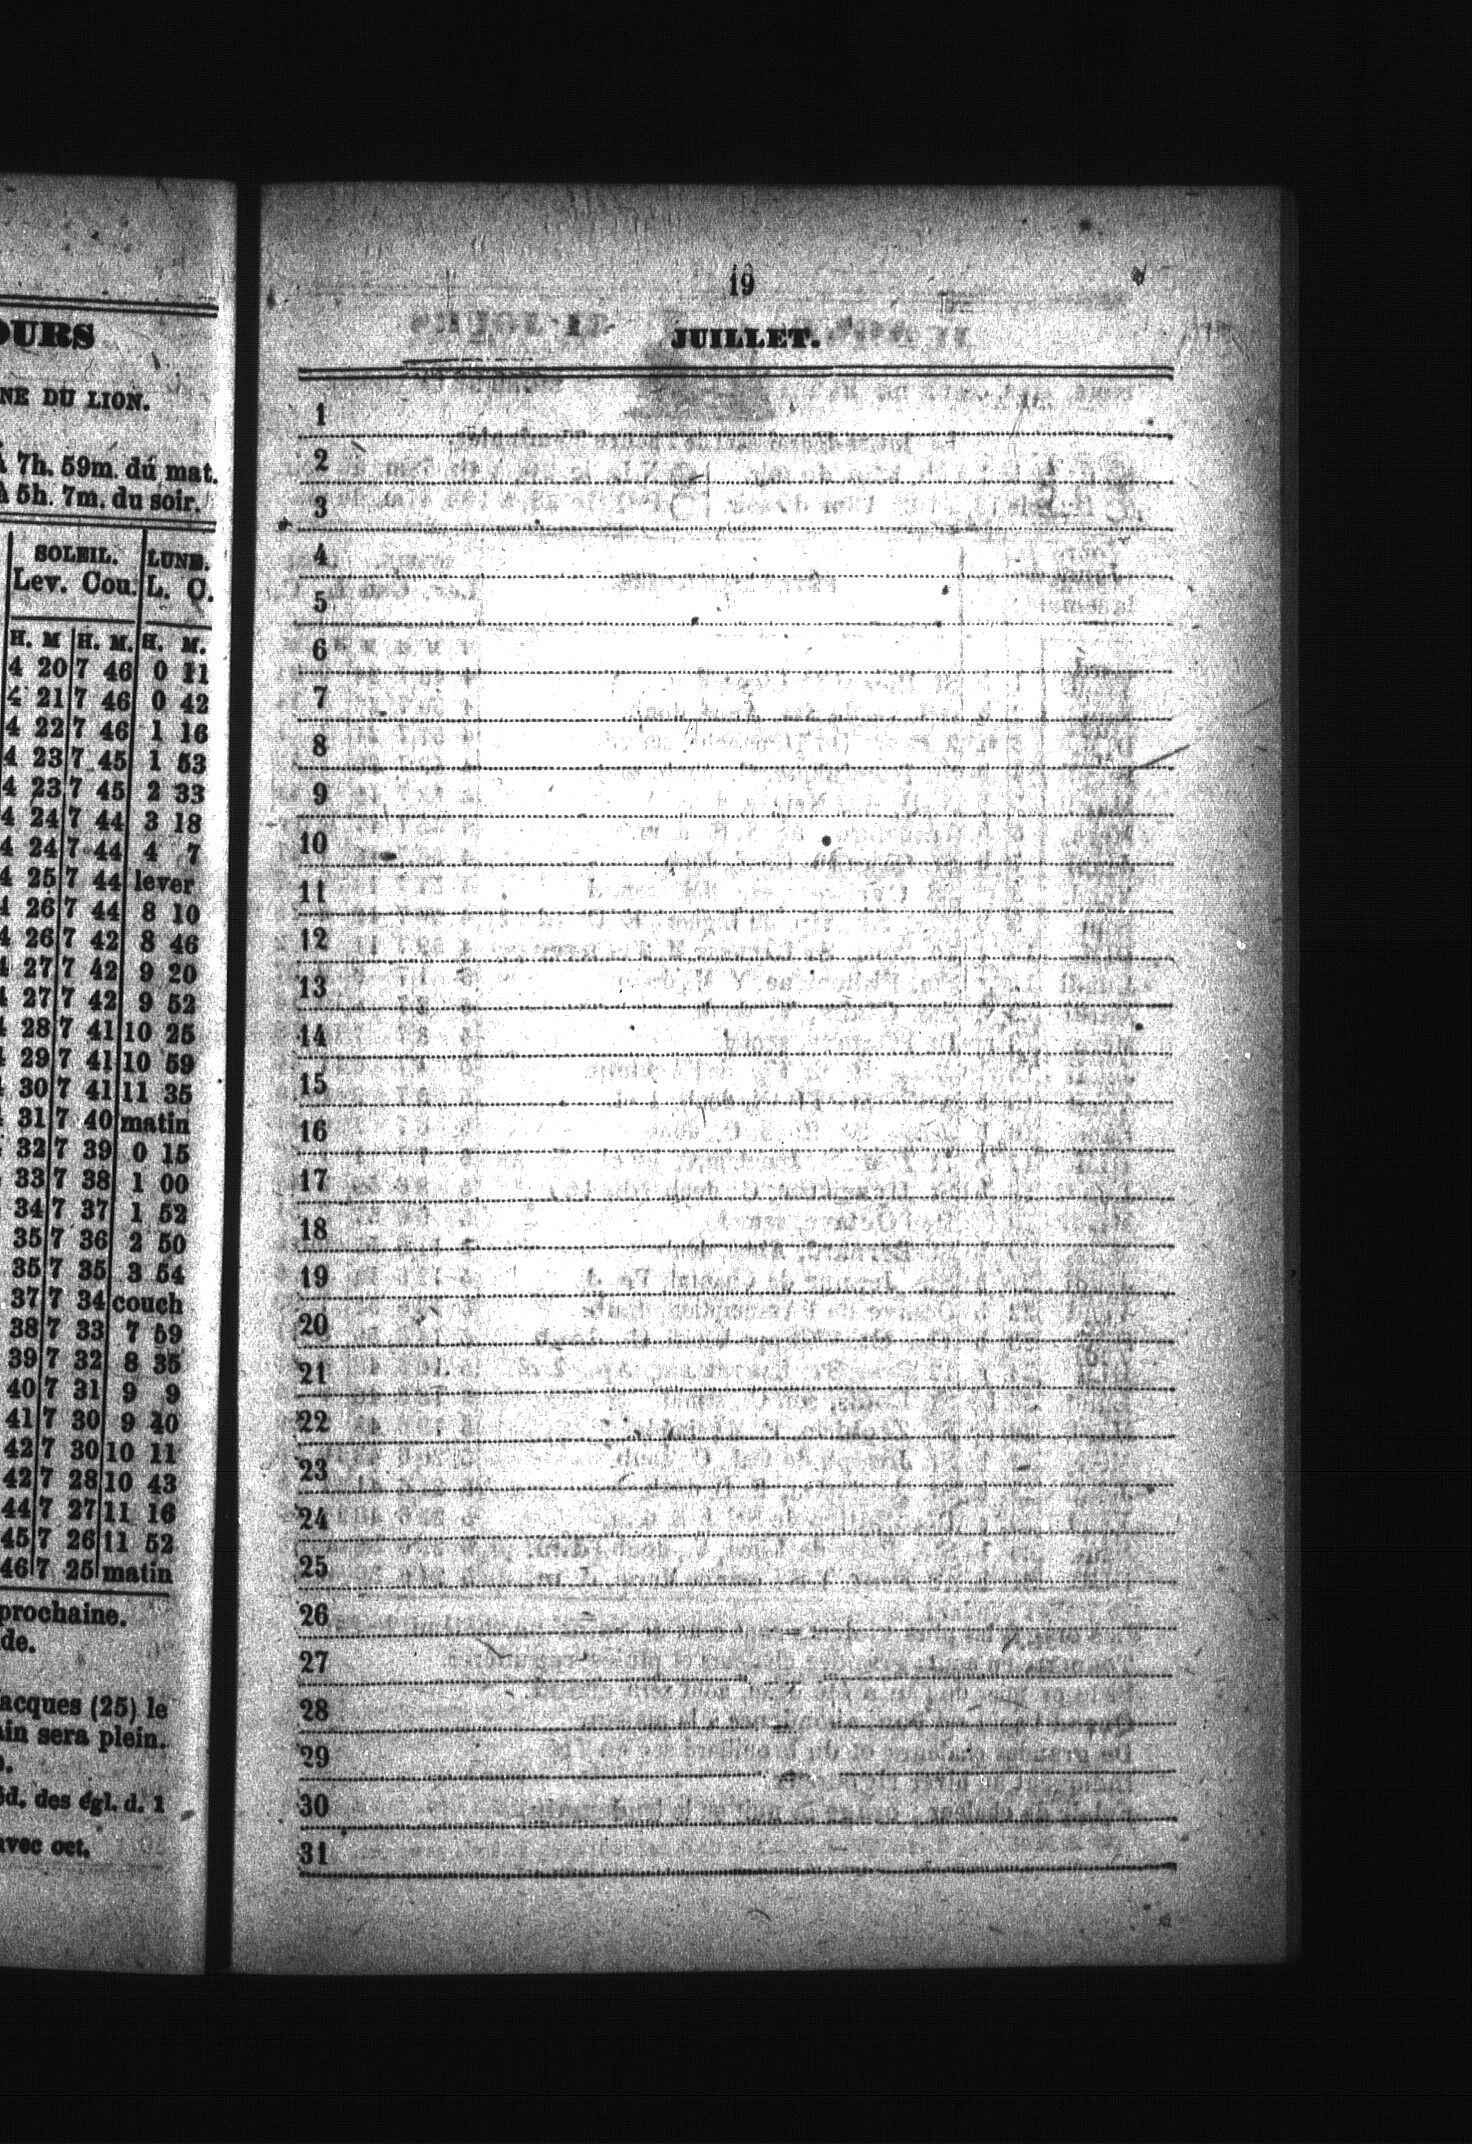 OURS
NE DU LION.
À 7h. 59m. du mat.
à 5h. 7m. du soir.
SOLEIL. LUNE.
Lev. Cou. L. C.
H. M H. M. H. M.
4 20 7 46 0 11
4 21 7 46 0 42
4 22 7 46 1 16
4 23 7 45 1 53
4 23 7 45 2 33
4 24 7 44 3 18
4 24 7 44 4 7
4 25 7 44 lever
4 26 7 44 8 10
4 26 7 42 8 46
4 27 7 42 9 20
4 27 7 42 9 52
4 28 7 41 10 25
4 29 7 41 10 59
4 30 7 41 11 35
31 7 40 matin
32 7 39 0 15
33 7 38 1 00
34 7 37 1 52
35 7 36 2 50
35 7 35 3 54
37 7 34 couch
38 7 33 7 59
39 7 32 8 35
40 7 31 9 9
41 7 30 9 40
42 7 30 10 11
42 7 28 10 43
44 7 27 11 16
45 7 26 11 52
46 7 25 matin
prochaine.
de.
acques (25) le
ain sera plein.
éd. des égl. d. 1
avec oct.
19
JUILLET.
1
2
3
4
5
6
7
8
9
10
11
12
13
14
15
16
17
18
19
20
21
22
23
24
25
26
27
28
29
30
31